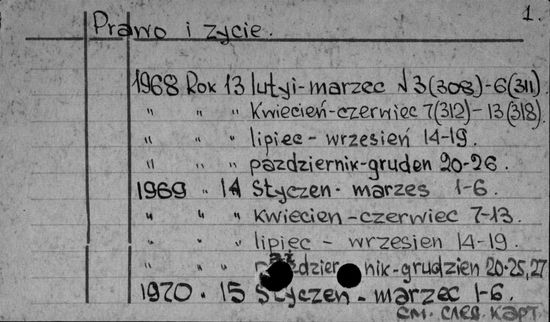 1.
Prawo i życie.
1968 Rok 13 lutyi-marzec №3(308)-6(311)
" " " Kwiecień-czerwiec 7(312)-13(318).
" " " lipiec - wrzesień 14-19.
" " " październik-gruden 20-26.
1969 " 14 Styczen- marzes 1-6.
" " " kwiecien-czerwiec 7-13.
" " " lipiec - wrzesien 14-19.
" " " nik-grudzien 20-25,27
1970 . 15 Styczen- marzec 1-6.
см. след. карт.